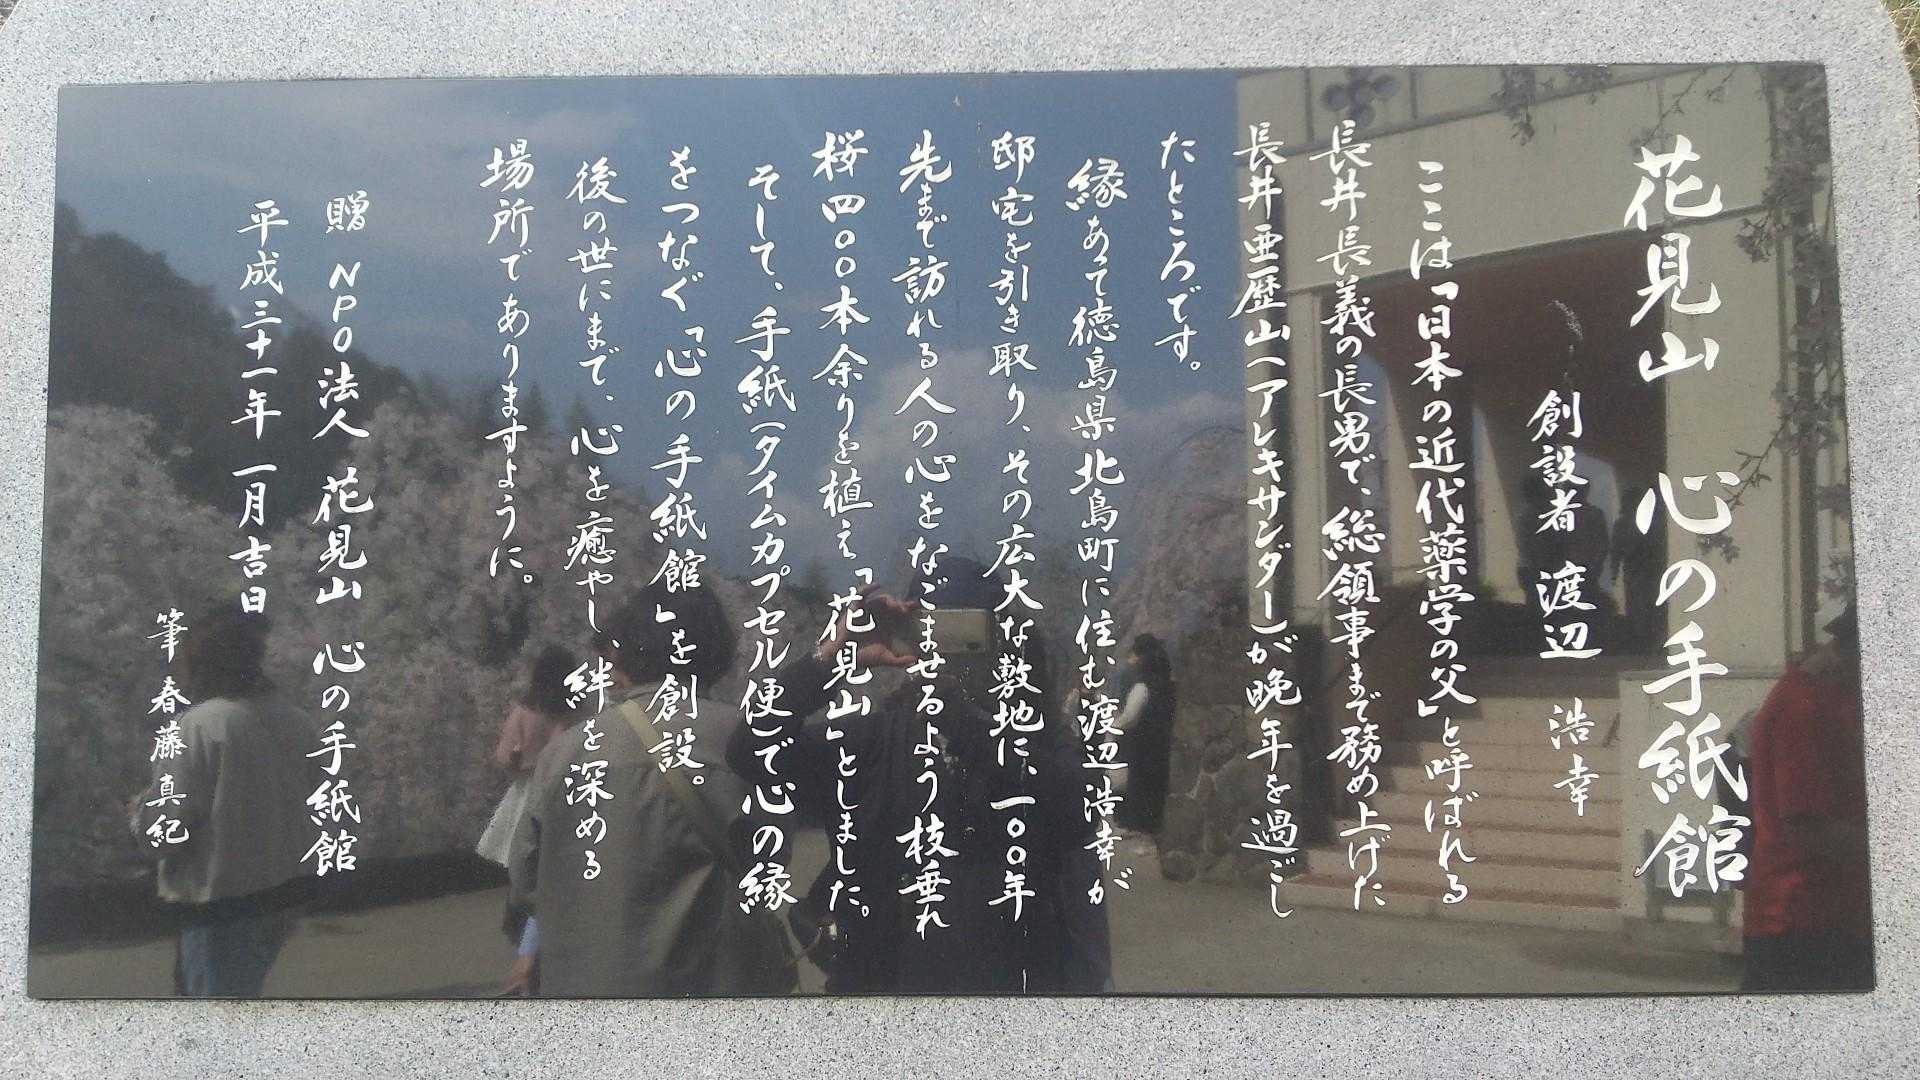 花見山 心の手紙館
創設者 渡辺 浩幸
ここは「日本の近代薬学の父」と呼ばれる
長井長義の長男で、総領事まで務め上げた
長井亜歴山(アレキサンダー)が晩年を過ごし
たところです。
縁あって徳島県北島町に住む渡辺浩幸が
邸宅を引き取り、その広大な敷地に、一〇〇年
先まで訪れる人の心をなごませるよう枝垂れ
桜四〇〇本余りを植え「花見山」としました。
そして、手紙(タイムカプセル便)で心の縁
をつなぐ「心の手紙館」を創設。
後の世にまで、心を癒やし、絆を深める
場所でありますように。
贈 NPO法人 花見山 心の手紙館
平成三十一年 一月吉日
筆 春藤真紀